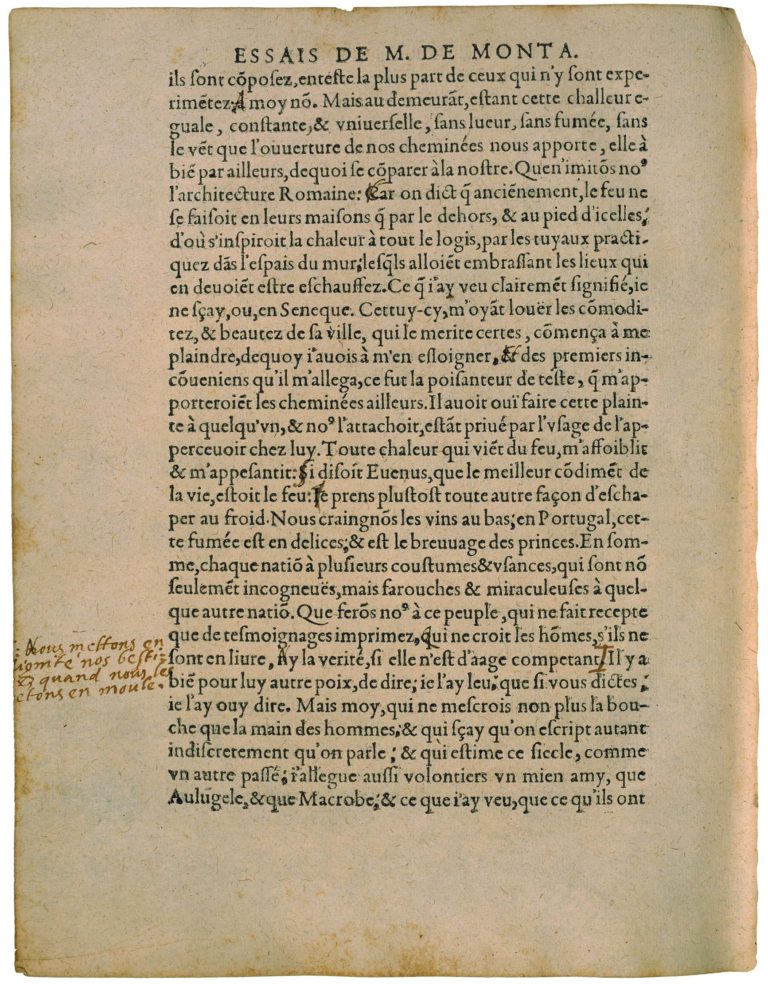 ESSAIS DE M. DE MONTA.
ils sont cōposez, enteste la plus part de ceux qui n'y sont expe-
rimētez: A moy nō. Mais au demeurāt, estant cette challeur e-
guale, constante, & vniuerselle, sans lueur, sans fumée, sans
le vēt que l'ouuerture de nos cheminées nous apporte, elle à
bié par ailleurs, dequoy se cōparer à la nostre. Que n'imitōs noꝰ
l'architecture Romaine: Car on dict q̄ anciénement, le feu ne
se faisoit en leurs maisons q̄ par le dehors, & au pied d'icelles:
d'où s'inspiroit la chaleur à tout le logis, par les tuyaux practi-
quez dās l'espais du mur, lesq̄ls alloiēt embrassant les lieux qui
en deuoiēt estre eschauffez. Ce q̄ i'ay veu clairemēt signifié, ie
ne sçay, ou, en Seneque. Cettuy-cy, m'oyāt louër les cōmodi-
tez, & beautez de sa ville, qui le merite certes, cōmença à me
plaindre, dequoy i'auois à m'en esloigner, & des premiers in-
cōueniens qu'il m'allega, ce fut la poisanteur de teste, q̄ m'ap-
porteroiēt les cheminées ailleurs. Il auoit ouï faire cette plain-
te à quelqu'vn, & noꝰ l'attachoit, estāt priué par l'vsage de l'ap-
perceuoir chez luy. Toute chaleur qui viēt du feu, m'affoiblit
& m'appesantit: Si disoit Euenus, que le meilleur cōdimēt de
la vie, estoit le feu: Ie prens plustost toute autre façon d'escha-
per au froid. Nous craingnōs les vins au bas; en Portugal, cet-
te fumée est en delices; & est le breuuage des princes. En som-
me, chaque natiō à plusieurs coustumes & vsances, qui sont nō
seulemēt incogneuës, mais farouches & miraculeuses à quel-
que autre natiō. Que ferōs noꝰ à ce peuple, qui ne fait recepte
que de tesmoignages imprimez, qui ne croit les hōmes, s'ils ne
sont en liure, ny la verité, si elle n'est d'àage competant. Il y a
bié pour luy autre poix, de dire; ie l'ay leu; que si vous dictes;
ie l'ay ouy dire. Mais moy, qui ne mescrois non plus la bou-
che que la main des hommes; & qui sçay qu'on escript autant
indiscretement qu'on parle; & qui estime ce siecle, comme
vn autre passé; i'allegue aussi volontiers vn mien amy, que
Aulugele, & que Macrobe; & ce que i'ay veu, que ce qu'ils ont
Nous mettons en
nos besti
quand nous les
etons en moule.